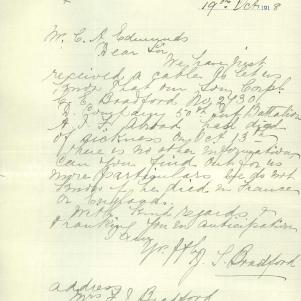 19th Oct 1918
Mr. C. A. Edmunds
Dear Sir
We have just
received a cable to let us
know that our Son Corpl
C. E. Bradford No 2730
D. Company 50th Battalion
A. I. F. Abroad has died
of sickness on Oct 13th
there is no other information
can you find out for us
more particulars we do not
know if he died in France
or England.
With kind regards &
thanking you in anticipation
I am
J. Bradford
address
Mrs J. Bradford